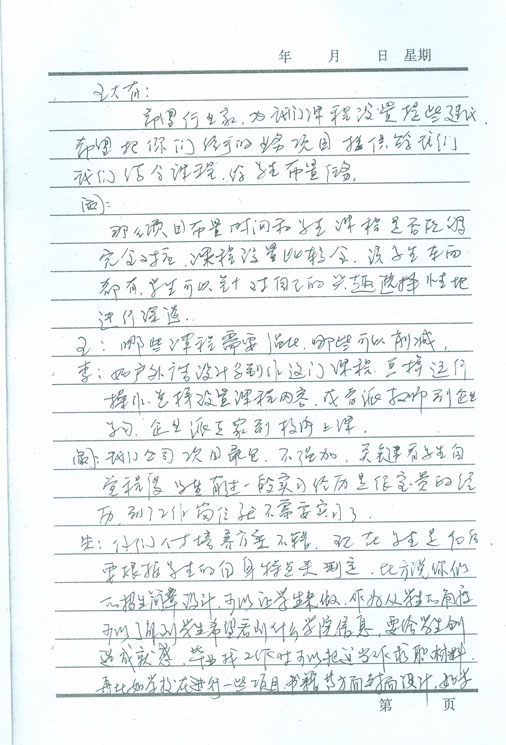 年 月 日 星期
王大有：
希望行业家，为我们课程设置提些建议，
希望把你们公司的业务项目提供给我们
我们结合课程，给学生布置任务。
周：
那么项目布置时间和学生课程是否能够
完全对接，课程设置比较全，该学生东西
都有，学生可以针对自己的兴趣选择性地
进行深造。
王：哪些课程需要强化，哪些可以削减，
李：如户外广告设计与制作这门课程，怎样运行
操作，怎样设置课程内容，或者派教师到企业
学习，企业派专家到校外上课。
周：我们公司项目最多，不强加，关键看学生自
觉程度，学生有过一段实习经历是很宝贵的经
历，到工作岗位就不需要实习了。
生：你们人才培养方案不错，现在学生是90后
要根据学生的自身特点来制定，比方说你们
的招生简章设计，可以让学生来做，作为从学生的角度
可以了解到学生希望看到什么学院信息，要给学生创
造成就感，毕业找工作时可以把这当作求职材料，
再比如学校在进行一些项目，书籍等方面封面设计，如学
第 页